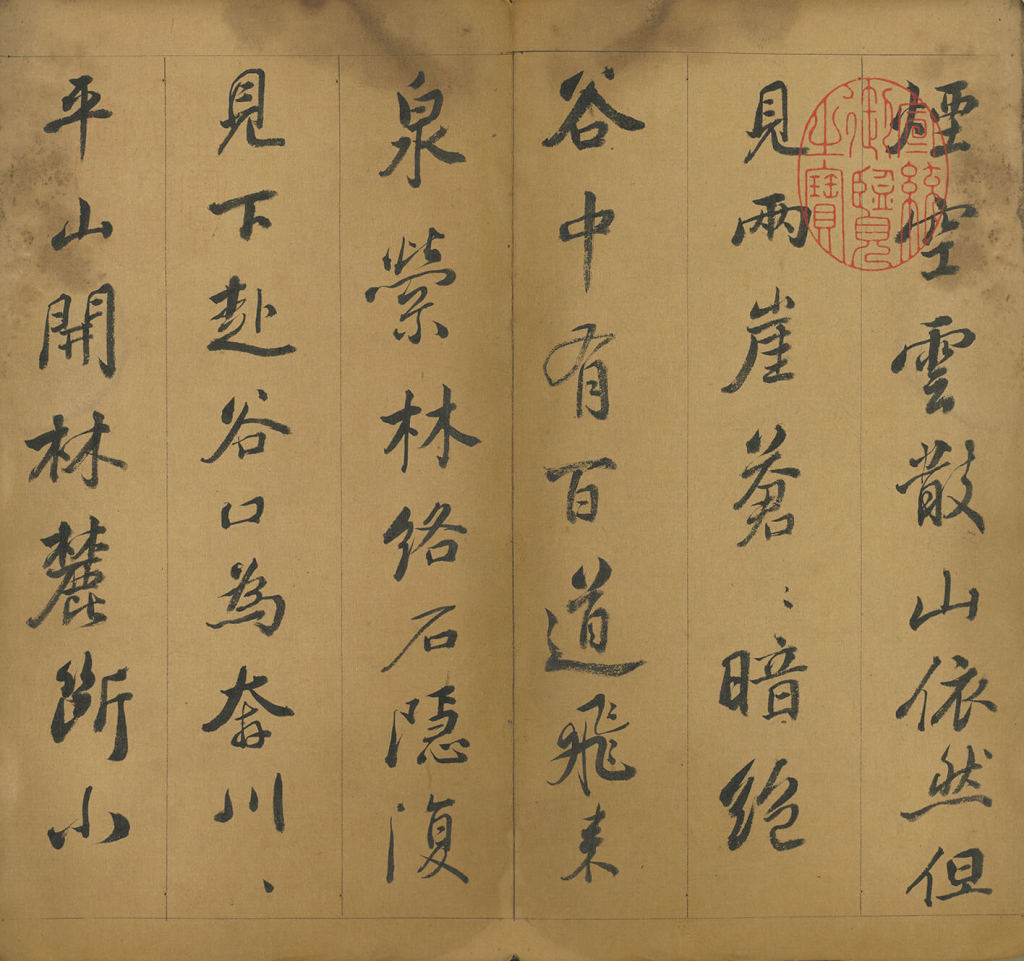 煙空雲散山依然但
見兩崖蒼〻暗絶
谷中有百道飛來
泉縈林絡石隱復
見下赴谷口為奔川、
平山開林麓斷小
宣統御覽之寶